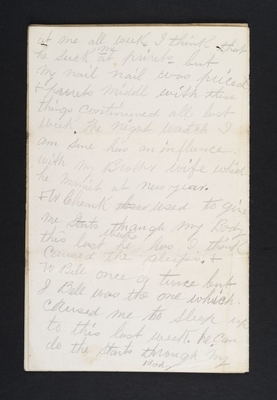 at me all week I think that
he suck at me prints but
my nail nail was priced
& prints middl with these
things continued all last
week. The negro watch I
am sure has an influence
with my Brothers wife which
he married at new year.
& W Cheank used to give
me starts though my Body
this last weeks he has I think
caused the sleeps. &
W Bell once or twice but
I Bell was the one which
caused me to sleep up
to this last week. he can
do the starts through my